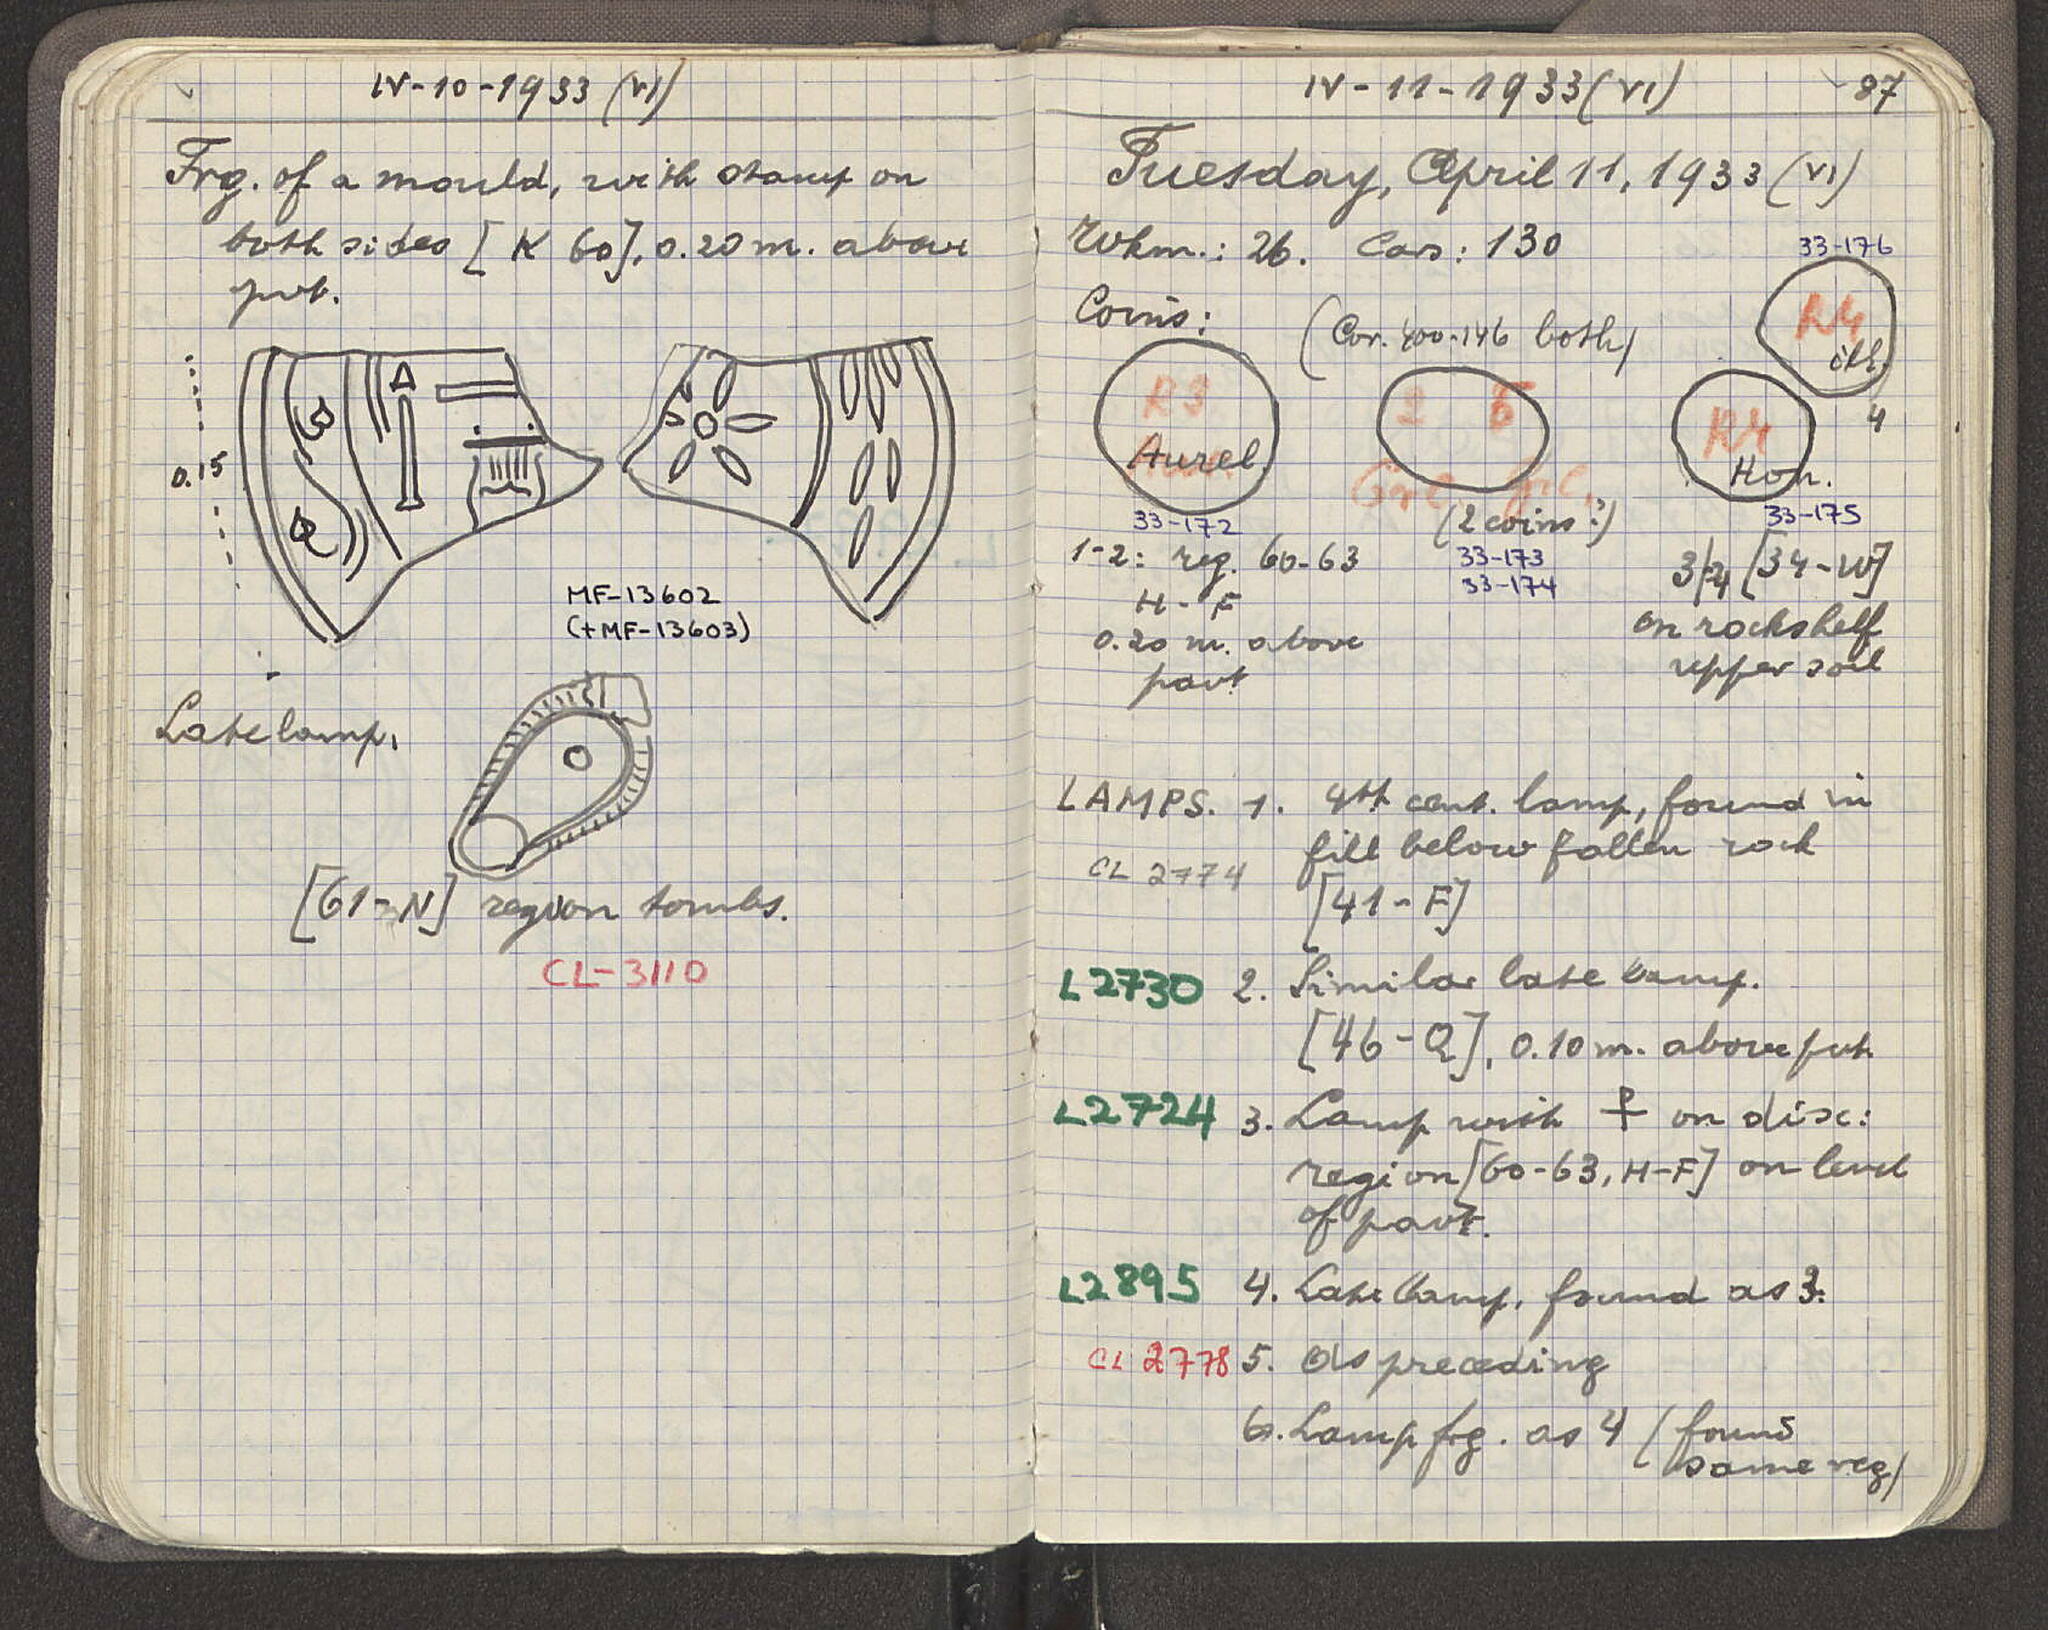 IV-10-1933 (VI)
Frg. of a mould, with stamp on
both sides [K 60], 0.20 m. above
pvt.
0.15
MF-13602
(+MF-13603)
Late lamp.
[61-N] region tombs.
CL-3110
IV-11-1933 (VI) 87
Tuesday, April 11, 1933 (VI)
Wkm.: 26. Cars: 130
33-176
Coins:
(Cor. 400-146 both)
R4
R3
Aurel.
2 6
R4
Hon.
4
33-172
(2 coins?)
33-173
33-174
33-175
1-2: reg. 60-63
H-F
0.20 m. above
pavt
3/4 [34-W]
on rockshelf
upper soil
LAMPS. 1. 4th cent. lamp, found in
fill below fallen rock
CL 2774
[41-F]
L2730 2. Similar late lamp.
[46-Q], 0.10 m. above pvt.
L2724 3. Lamp with ⳨ on disc:
region [60-63, H-F] on level
of pavt.
L2895 4. Late lamp, found as 3.
CL 2778 5. As preceding
6. Lamp frg. as 4 (found
same reg)